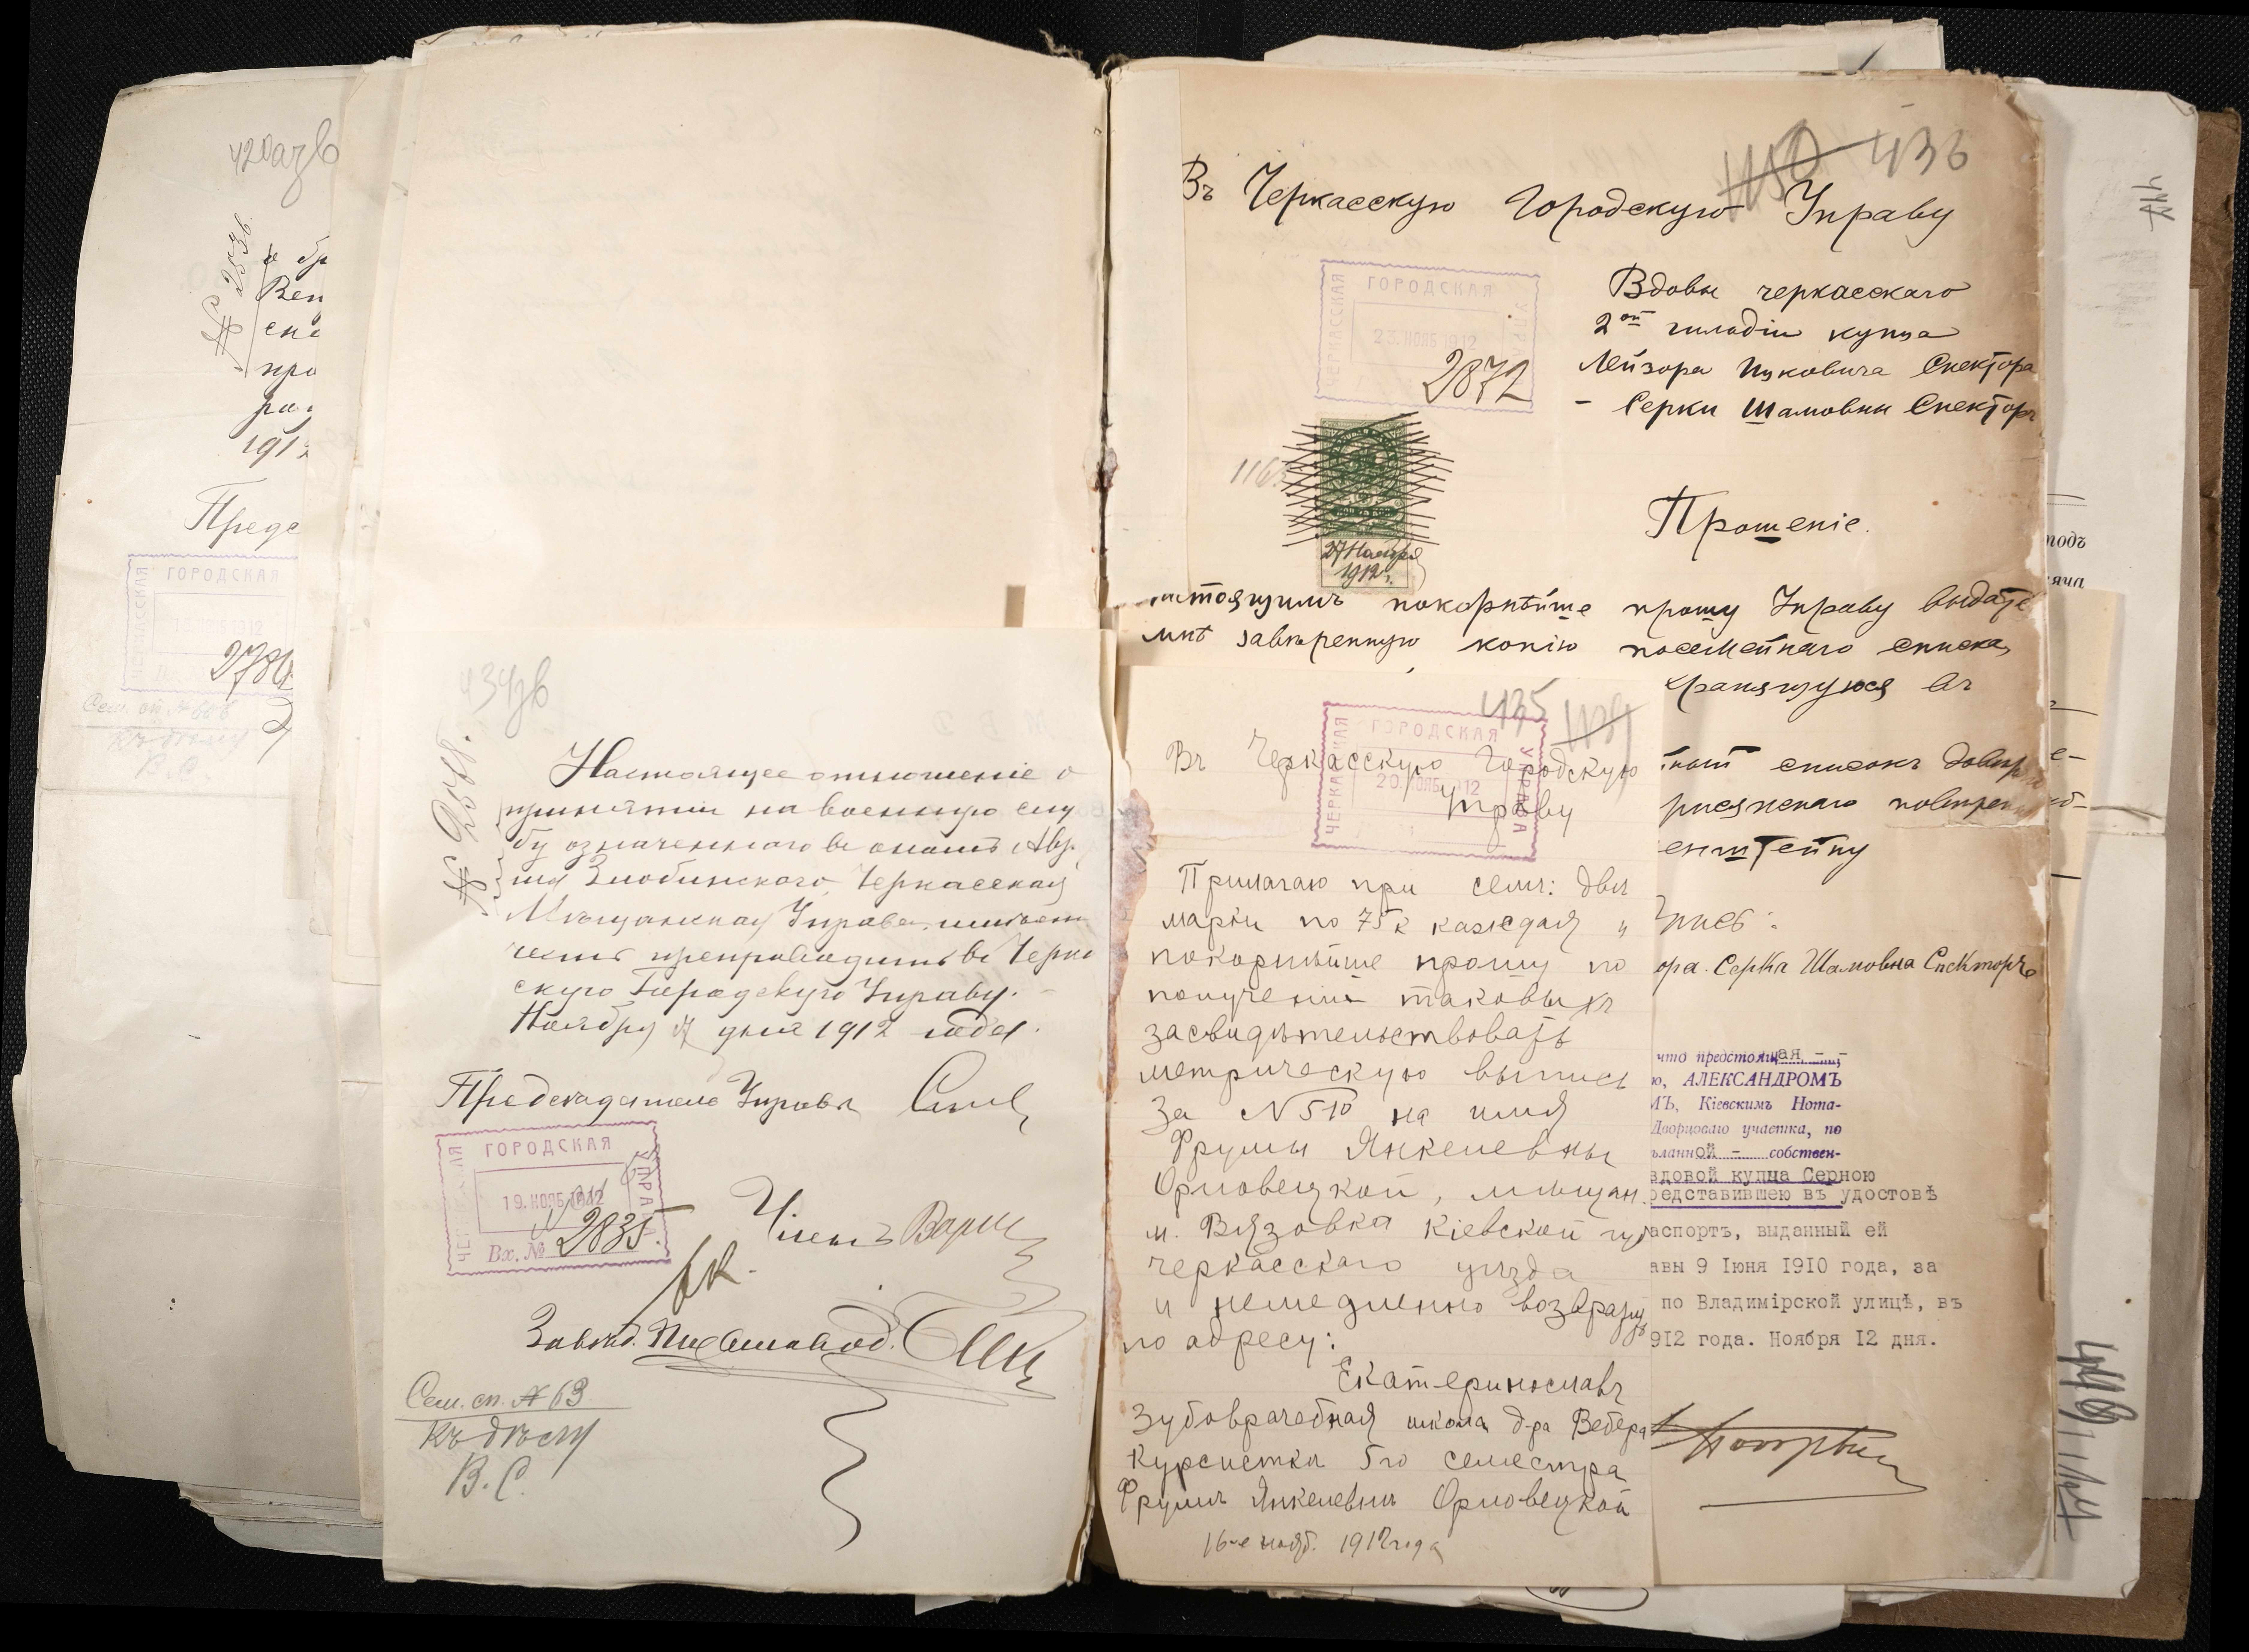 420 аз в
№ 2536.
о бр
Вен
спи
про
ра
191
Предс
ГОРОДСКАЯ
278
Сем. сп. №
Къ дѣлу
В. С.
434 зв
№ 2088.
Настоящее отношеніе о
принятіи на военную слу
бу означеннаго въ ономъ Авру
ма Злобинскаго, Черкасская
Мѣщанская Управа, имѣетъ
честь препроводить въ Черка
скую Городскую Управу.
Ноября 17 дня 1912 года.
Предсѣдатель Управы
ГОРОДСКАЯ
УПРАВА
19. НОЯБ. 1912
Вх. № 2835.
Членъ
Завѣд. Письмовод.
Сем. сп. № 63.
Къ дѣлу
В. С.
436
Въ Черкасскую Городскую Управу
ЧЕРКАССКАЯ ГОРОДСКАЯ УПРАВА
23. НОЯБ 1912
2872
Вдовы черкасскаго
2ой гильдіи купца
Лейзора Ицковича Спектора
- Серки Шамовны Спекторъ
116
27 Ноября
1912 г.
Прошеніе.
астоящимъ покорнѣйше прошу Управу выдать
мнѣ завѣренную копію посемейнаго списка,
хранящуюся въ
списокъ довѣр
рисяжнаго повѣрен
енштейну
ора. Серка Шамовна Спекторъ
что предстоящая - -
ю, АЛЕКСАНДРОМЪ
МЪ, Кіевскимъ Нота-
Дворцоваго участка, по
ѣланной - собствен-
вдовой купца Серною
редставившею въ удостовѣ
аспортъ, выданный ей
авы 9 Іюня 1910 года, за
по Владимірской улицѣ, въ
912 года. Ноября 12 дня.
435
ЧЕРКАССКАЯ ГОРОДСКАЯ УПРАВА
20. НОЯБ. 1912
Въ Черкасскую Городскую
Управу
Прилагаю при семъ: двѣ
марки по 75 к каждая и
покорнѣйше прошу по
полученіи таковыхъ
засвидѣтельствовать
метрическую выпись
за N 510 на имя
Фрумы Янкелевны
Орловецкой, мѣщан.
м. Вязовка Кіевской губ
черкасскаго уѣзда
и немедленно возвратить
по адресу:
Екатеринославъ
Зубоврачебная школа д-ра Вебера
курсистки 5го семестра
Фрумѣ Янкелевнѣ Орловецкой
16-е нояб. 1912 года